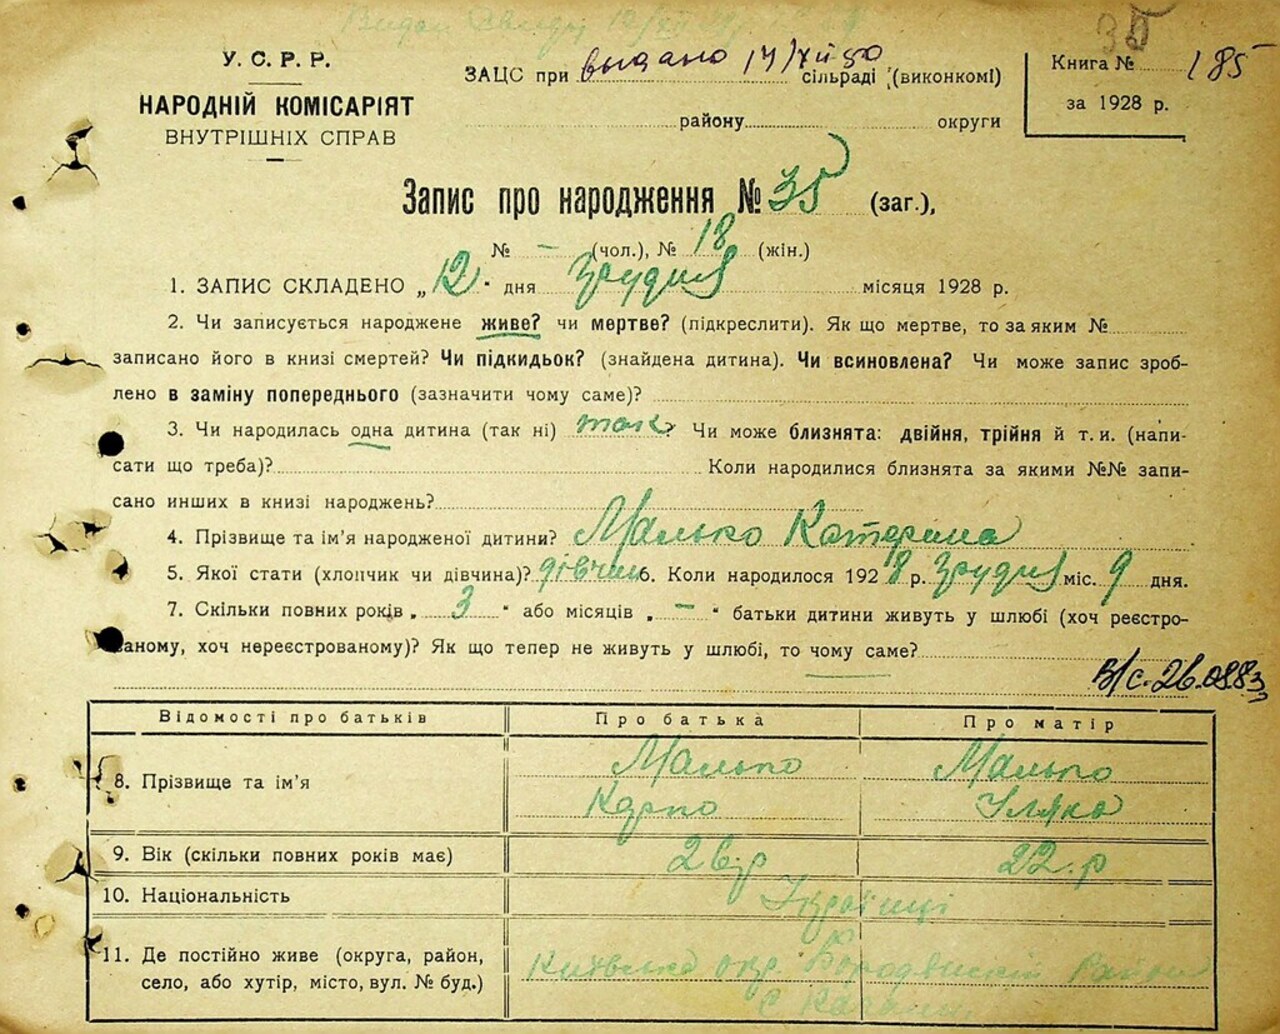 35
У. С. Р. Р.
НАРОДНІЙ КОМІСАРІЯТ
ВНУТРІШНІХ СПРАВ
ЗАЦС при выдано 17/XII 50 сільраді (виконкомі)
району округи
Книга № 185
за 1928 р.
Запис про народження № 35 (заг.),
№ – (чол.), № 18 (жін.)
1. ЗАПИС СКЛАДЕНО „12" дня Грудня місяця 1928 р.
2. Чи записується народжене живе? чи мертве? (підкреслити). Як що мертве, то за яким №
записано його в книзі смертей? Чи підкидьок? (знайдена дитина). Чи всиновлена? Чи може запис зроб-
лено в заміну попереднього (зазначити чому саме)?
3. Чи народилась одна дитина (так ні) так? Чи може близнята: двійня, трійня й т. и. (напи-
сати що треба)? Коли народилися близнята за якими №№ запи-
сано инших в книзі народжень?
4. Прізвище та ім'я народженої дитини? Малько Катерина
5. Якої стати (хлопчик чи дівчина)? дівчин 6. Коли народилося 1928 р. Грудня міс. 9 дня.
7. Скільки повних років „ 3 " або місяців „ – " батьки дитини живуть у шлюбі (хоч реєстро-
ваному, хоч нереєстрованому)? Як що тепер не живуть у шлюбі, то чому саме?
В/с. 26.08.83
Відомості про батьків Про батька Про матір
8. Прізвище та ім'я Малько Карпо Малько Уляна
9. Вік (скільки повних років має) 26 р 22. р
10. Національність Українці
11. Де постійно живе (округа, район,
село, або хутір, місто, вул. № буд.)
Київська окр. Бородянський Район
с